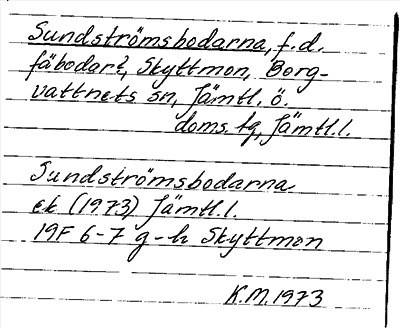 Sundströmsbodarna, f.d.
fäbodar?, Skyttmon, Borg-
vattnets sn, Jämtl. ö.
doms. tg, Jämtl. l.
Sundströmsbodarna
ek (1973) Jämtl. l.
19F 6-7 g-h Skyttmon
K.M. 1973